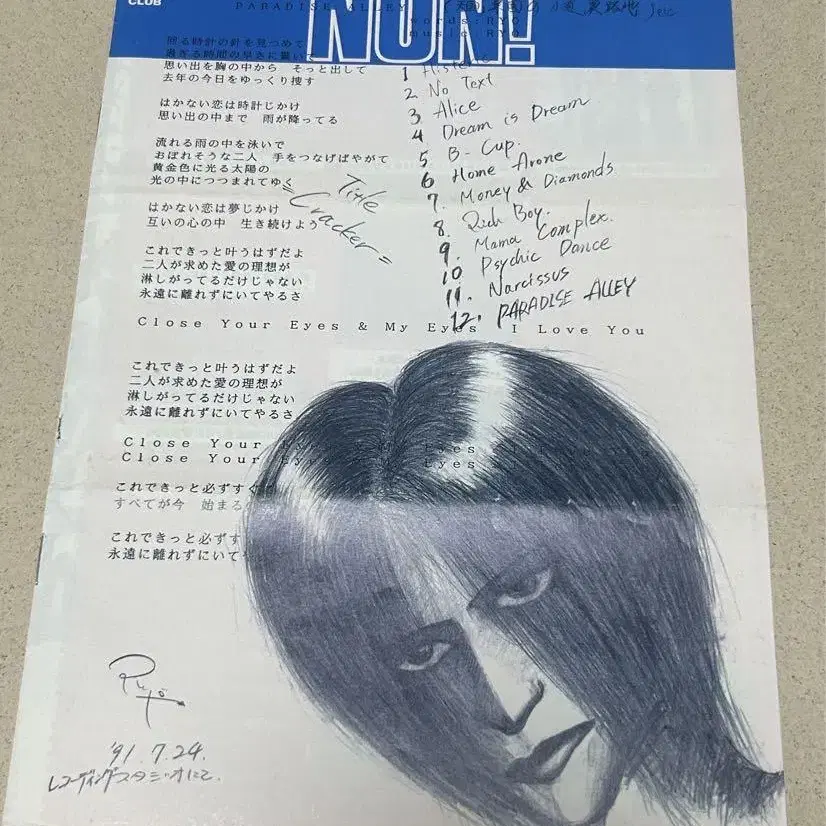 CLUB
NUR!
PARADISE ALLEY
words:RYO
music:RYO
回る時計の針を見つめて
過ぎる時間の早さに驚いて
思い出を胸の中から そっと出して
去年の今日をゆっくり捜す
はかない恋は時計じかけ
思い出の中まで 雨が降ってる
流れる雨の中を泳いで
おぼれそうな二人 手をつなげばやがて
黄金色に光る太陽の
光の中につつまれてゆく
はかない恋は夢じかけ
互いの心の中 生き続けよう
これできっと叶うはずだよ
二人が求めた愛の理想が
淋しがってるだけじゃない
永遠に離れずにいてやるさ
Close Your Eyes & My Eyes I Love You
これできっと叶うはずだよ
二人が求めた愛の理想が
淋しがってるだけじゃない
永遠に離れずにいてやるさ
Close Your
Close Your Ey Eyes
これできっと必ずすぐ
すべてが今 始まる
これできっと必ず
永遠に離れずにいて
Title
=Cracker=
1
2 No Text
3 Alice
4 Dream is Dream
5 B-Cup.
6 Home Arone
7. Money & Diamonds
8. Rich Boy.
9. Mama Complex.
10 Psychic Dance
11. Narcissus
12. PARADISE ALLEY
Ryo
'91.7.24.
レコーディングスタジオにて.